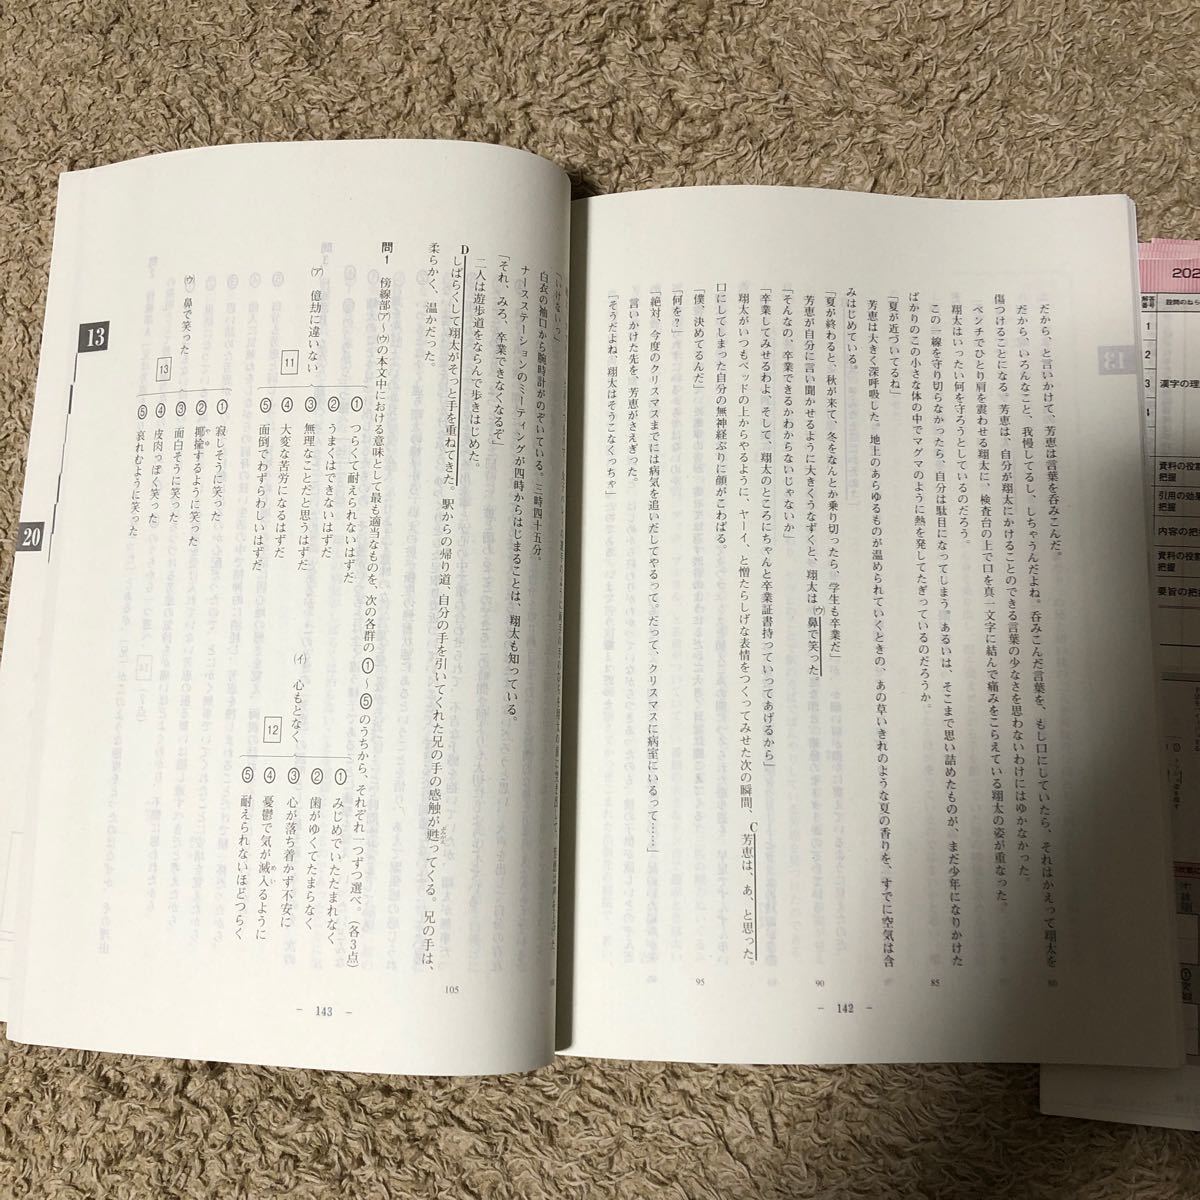 だから、と言いかけて、芳恵は言葉を呑みこんだ。
だから、いろんなこと、我慢してるし、しちゃうんだよね。呑みこんだ言葉を、もし口にしていたら、それはかえって翔太を
傷つけることになる。芳恵は、自分が翔太にかけることのできる言葉の少なさを思わないわけにはゆかなかった。
ペンチでひとり肩を震わせる翔太に、検査台の上で口を真一文字に結んで痛みをこらえている翔太の姿が重なった。
翔太はいったい何を守ろうとしているのだろう。
この一線を守り切らなかったら、自分は駄目になってしまう。あるいは、そこまで思い詰めたものが、まだ少年になりかけた
ばかりのこの小さな体の中でマグマのように熱を発してたぎっているのだろうか。
「夏が近づいてるね」
芳恵は大きく深呼吸した。地上のあらゆるものが温められていくときの、あの草いきれのような夏の香りを、すでに空気は含
みはじめている。
「夏が終わると、秋が来て、冬をなんとか乗り切ったら、学生も卒業だ」
芳恵が自分に言い聞かせるように大きくうなずくと、翔太は(ウ)鼻で笑った。
「そんなの、卒業できるかわからないじゃないか」
「卒業してみせるわよ、そして、翔太のところにちゃんと卒業証書持っていってあげるから」
翔太がいつもベッドの上からやるように、ヤーイ、と憎たらしげな表情をつくってみせた次の瞬間、C芳恵は、あ、と思った。
口にしてしまった自分の無神経ぶりに顔がこわばる。
「僕、決めてるんだ」
「何を？」
「絶対、今度のクリスマスまでには病気を追いだしてやるって。だって、クリスマスに病室にいるって……」
言いかけた先を、芳恵がさえぎった。
「そうだよね、翔太はそうこなくっちゃ」
80
85
90
95
― 142 ―
「いけないっ」
白衣の袖口から腕時計がのぞいている。三時四十五分。
ナースステーションのミーティングが四時からはじまることは、翔太も知っている。
「それ、みろ、卒業できなくなるぞ」
二人は遊歩道をならんで歩きはじめた。
Dしばらくして翔太がそっと手を重ねてきた。駅からの帰り道、自分の手を引いてくれた兄の手の感触が甦ってくる。兄の手は、
柔らかく、温かだった。
105
問1 傍線部(ア)～(ウ)の本文中における意味として最も適当なものを、次の各群の①～⑤のうちから、それぞれ一つずつ選べ。（各3点）
(ア) 億劫に違いない
11
① つらくて耐えられないはずだ
② うまくはできないはずだ
③ 無理なことだと思うはずだ
④ 大変な苦労になるはずだ
⑤ 面倒でわずらわしいはずだ
(イ) 心もとなく
12
① みじめでいたたまれなく
② 歯がゆくてたまらなく
③ 心が落ち着かず不安に
④ 憂鬱で気が滅入るように
⑤ 耐えられないほどつらく
(ウ) 鼻で笑った
13
① 寂しそうに笑った
② 揶揄するように笑った
③ 面白そうに笑った
④ 皮肉っぽく笑った
⑤ 哀れむように笑った
― 143 ―
13
20
202
設問のねら
1
2
3
4
漢字の理
資料の役割
把握
引用の効果
把握
内容の把
資料の役割
把握
要旨の把